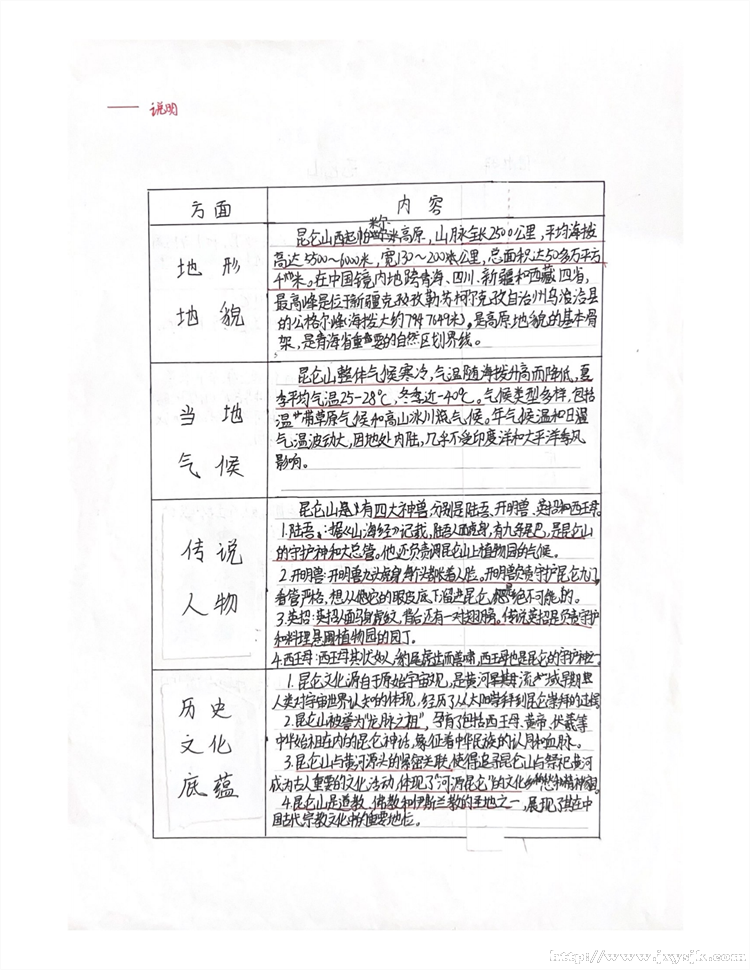 说明
方面
内容
地形
地貌
昆仑山西起帕米尔高原，山脉全长2500公里，平均海拔
高达5500～6000米，宽130～200公里，总面积达50多万平方
千米。在中国境内地跨青海、四川、新疆和西藏四省，
最高峰是位于新疆克孜勒苏柯尔克孜自治州乌恰县
的公格尔峰(海拔大约7649米)。是高原地貌的基本骨
架，是青海省重要的自然区划界线。
当地
气候
昆仑山整体气候寒冷，气温随海拔升高而降低，夏
季平均气温25-28℃，冬季近-40℃。气候类型多样，包括
温带草原气候和高山冰川气候。年气候温和日温
气温波动大，因地处内陆，几乎不受印度洋和太平洋季风
影响。
传说
人物
昆仑山有四大神兽，分别是陆吾、开明兽、英招和西王母
1.陆吾：据《山海经》记载，陆吾人面虎身，有九条尾巴，是昆仑山
的守护神和大总管。他还负责调昆仑山上植物园的气候。
2.开明兽：开明兽九头虎身，每个头都长着人脸。开明兽负责守护昆仑九门，
看管严格，想从他的眼皮底下溜进昆仑，是绝不可能的。
3.英招：英招人面马身虎纹，背后还有一对翅膀。传说英招是负责守护
和料理昆仑植物园的园丁。
4.西王母：西王母其状如人，豹尾虎齿而善啸，西王母也是昆仑的守护神之一
历史
文化
底蕴
1.昆仑文化源自于原始宇宙观，是黄河流域早期
人类对宇宙世界认知的体现，经历了从太阳崇拜到昆仑崇拜的过程
2.昆仑山被誉为“龙脉之祖”，孕育了包括西王母、黄帝、伏羲等
中华始祖在内的昆仑神话，象征着中华民族的认同和血脉。
3.昆仑山与黄河源头的紧密关联，使得追寻昆仑山与祭祀黄河
成为古人重要的文化活动，体现了“河源昆仑”的文化和精神
4.昆仑山是道教、佛教和伊斯兰教的圣地之一，展现了其在中
国古代宗教文化中的重要地位。
http://www.jxysjk.com